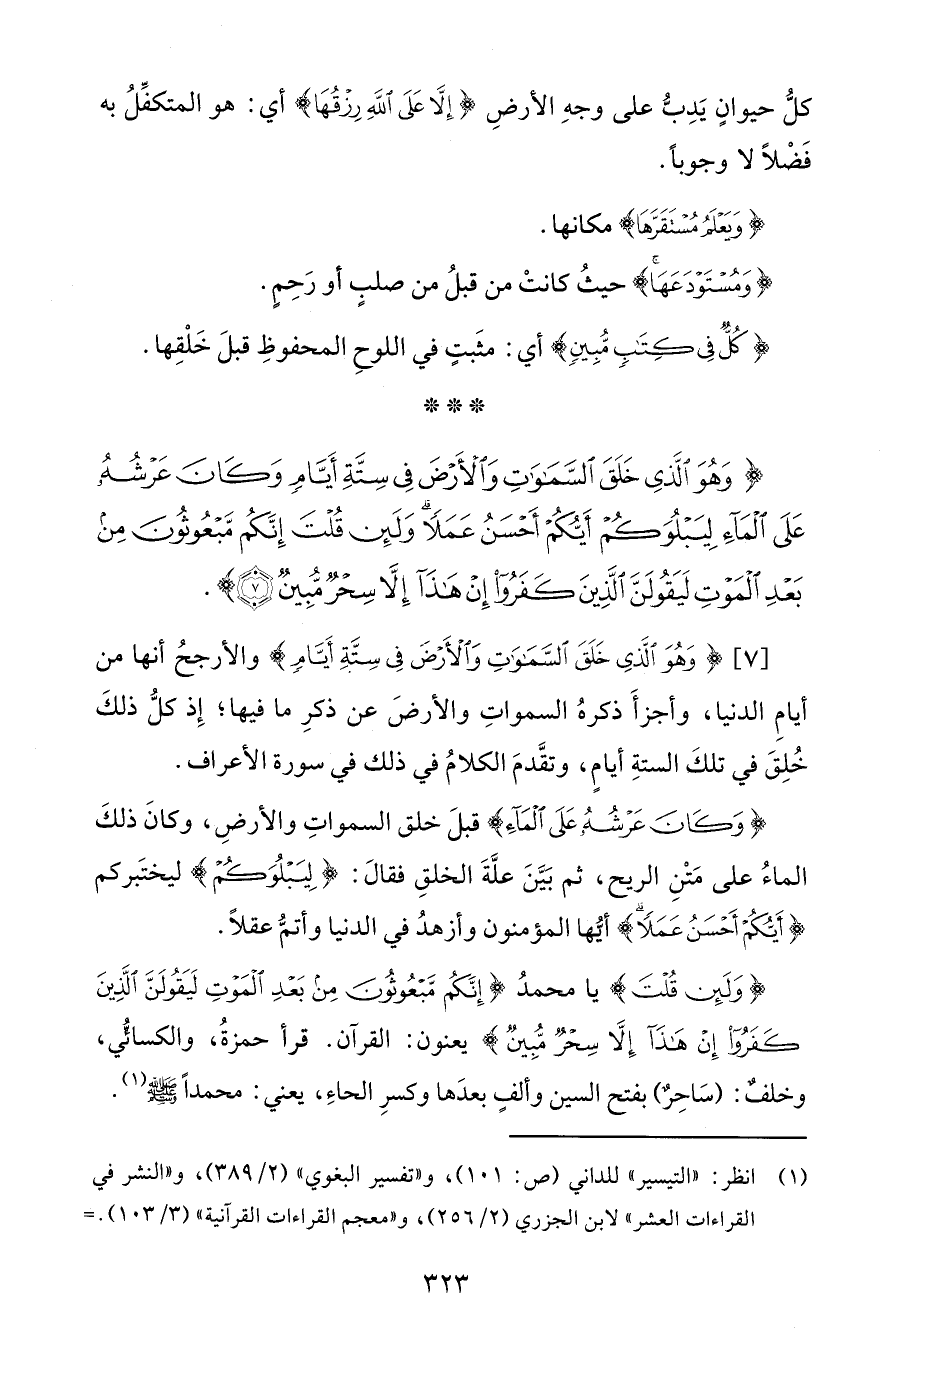 كلُّ حيوانٍ يَدِبُّ على وجهِ الأرضِ ﴿إِلَّا عَلَى ٱللَّهِ رِزْقُهَا﴾ أي: هو المتكفِّلُ به
فَضْلاً لا وجوباً.
﴿وَيَعْلَمُ مُسْتَقَرَّهَا﴾ مكانها.
﴿وَمُسْتَوْدَعَهَا﴾ حيثُ كانتْ من قبلُ من صلبٍ أو رَحِمٍ.
﴿كُلٌّ فِي كِتَٰبٍ مُّبِينٍ﴾ أي: مثبَتٍ في اللوحِ المحفوظِ قبلَ خَلْقِها.
* * *
﴿وَهُوَ ٱلَّذِى خَلَقَ ٱلسَّمَٰوَٰتِ وَٱلْأَرْضَ فِى سِتَّةِ أَيَّامٍ وَكَانَ عَرْشُهُۥ
عَلَى ٱلْمَآءِ لِيَبْلُوَكُمْ أَيُّكُمْ أَحْسَنُ عَمَلًا ۗ وَلَئِن قُلْتَ إِنَّكُم مَّبْعُوثُونَ مِنۢ
بَعْدِ ٱلْمَوْتِ لَيَقُولَنَّ ٱلَّذِينَ كَفَرُوٓا۟ إِنْ هَٰذَآ إِلَّا سِحْرٌ مُّبِينٌ ٧﴾.
[٧] ﴿وَهُوَ ٱلَّذِى خَلَقَ ٱلسَّمَٰوَٰتِ وَٱلْأَرْضَ فِى سِتَّةِ أَيَّامٍ﴾ والأرجحُ أنها من
أيامِ الدنيا، وأجزأَ ذكرهُ السمواتِ والأرضَ عن ذكرِ ما فيها؛ إذ كلُّ ذلكَ
خُلِقَ في تلكَ الستةِ أيامٍ، وتقدَّمَ الكلامُ في ذلك في سورة الأعراف.
﴿وَكَانَ عَرْشُهُۥ عَلَى ٱلْمَآءِ﴾ قبلَ خلق السمواتِ والأرضِ، وكانَ ذلكَ
الماءُ على مَتْنِ الريح، ثم بيَّنَ علَّةَ الخلقِ فقالَ: ﴿لِيَبْلُوَكُمْ﴾ ليختبَركم
﴿أَيُّكُمْ أَحْسَنُ عَمَلًا ۗ﴾ أيُّها المؤمنون وأزهدُ في الدنيا وأتمُّ عقلاً.
﴿وَلَئِن قُلْتَ﴾ يا محمدُ ﴿إِنَّكُم مَّبْعُوثُونَ مِنۢ بَعْدِ ٱلْمَوْتِ لَيَقُولَنَّ ٱلَّذِينَ
كَفَرُوٓا۟ إِنْ هَٰذَآ إِلَّا سِحْرٌ مُّبِينٌ﴾ يعنون: القرآن. قرأ حمزةُ، والكسائيُّ،
وخلفٌ: (سَاحِرٌ) بفتح السين وألفٍ بعدَها وكسرِ الحاءِ، يعني: محمداً ﷺ(١).
(١) انظر: «التيسير» للداني (ص: ١٠١)، و«تفسير البغوي» (٢/ ٣٨٩)، و«النشر في
القراءات العشر» لابن الجزري (٢/ ٢٥٦)، و«معجم القراءات القرآنية» (٣/ ١٠٣). =
٣٢٣